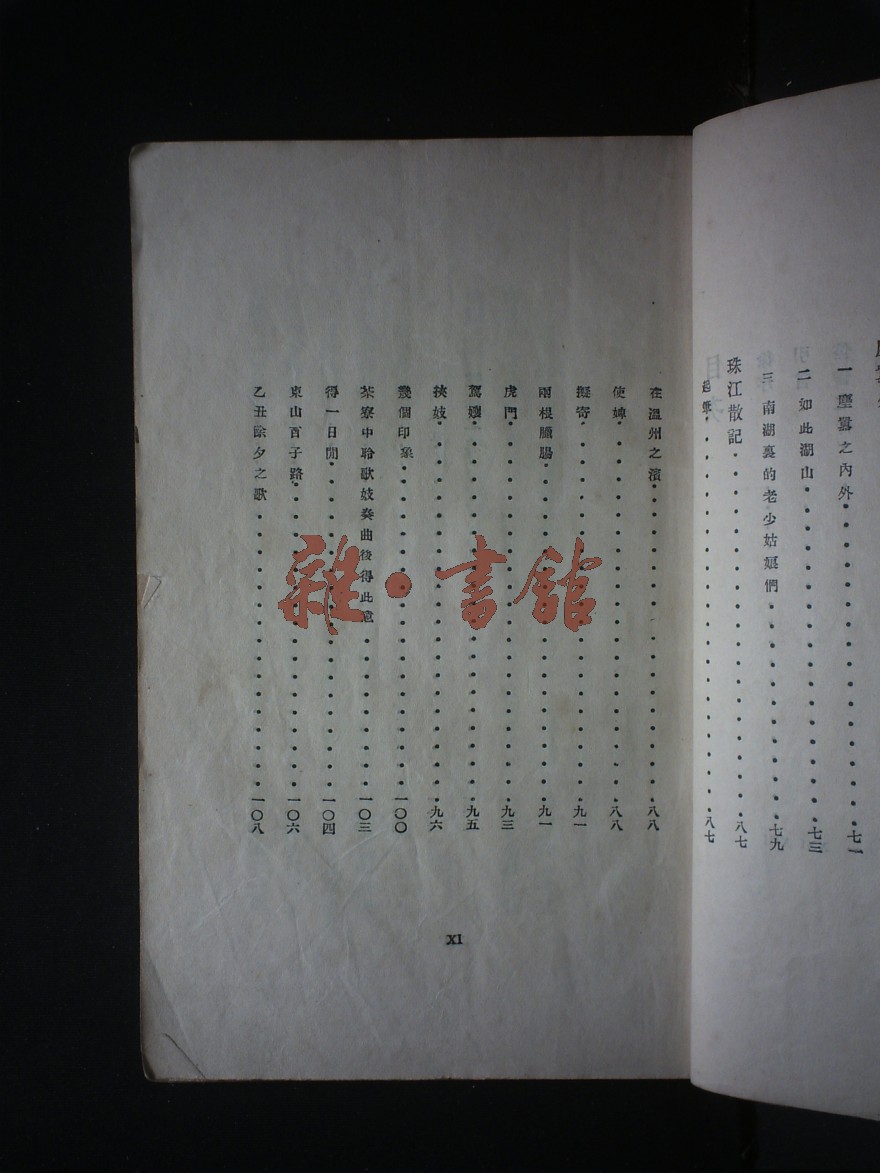 一 塵囂之內外・・・・・・・・七一
二 如此湖山・・・・・・・・・・七三
三 南湖裏的老少姑娘們・・・・七九
珠江散記・・・・・・・・・・・・八七
起來・・・・・・・・・・・・・・八七
在溫州之濱・・・・・・・・・・・八八
使婢・・・・・・・・・・・・・・八八
擬寄・・・・・・・・・・・・・・九一
兩根臘腸・・・・・・・・・・・・九一
虎門・・・・・・・・・・・・・・九三
鴛孃・・・・・・・・・・・・・・九五
挾妓・・・・・・・・・・・・・・九六
幾個印象・・・・・・・・・・・・一〇〇
茶寮中聆歌妓奏曲後得此意・・・・一〇三
得一日閒・・・・・・・・・・・・一〇四
東山百子路・・・・・・・・・・・一〇六
乙丑除夕之歌・・・・・・・・・・一〇八
XI
雜・書館